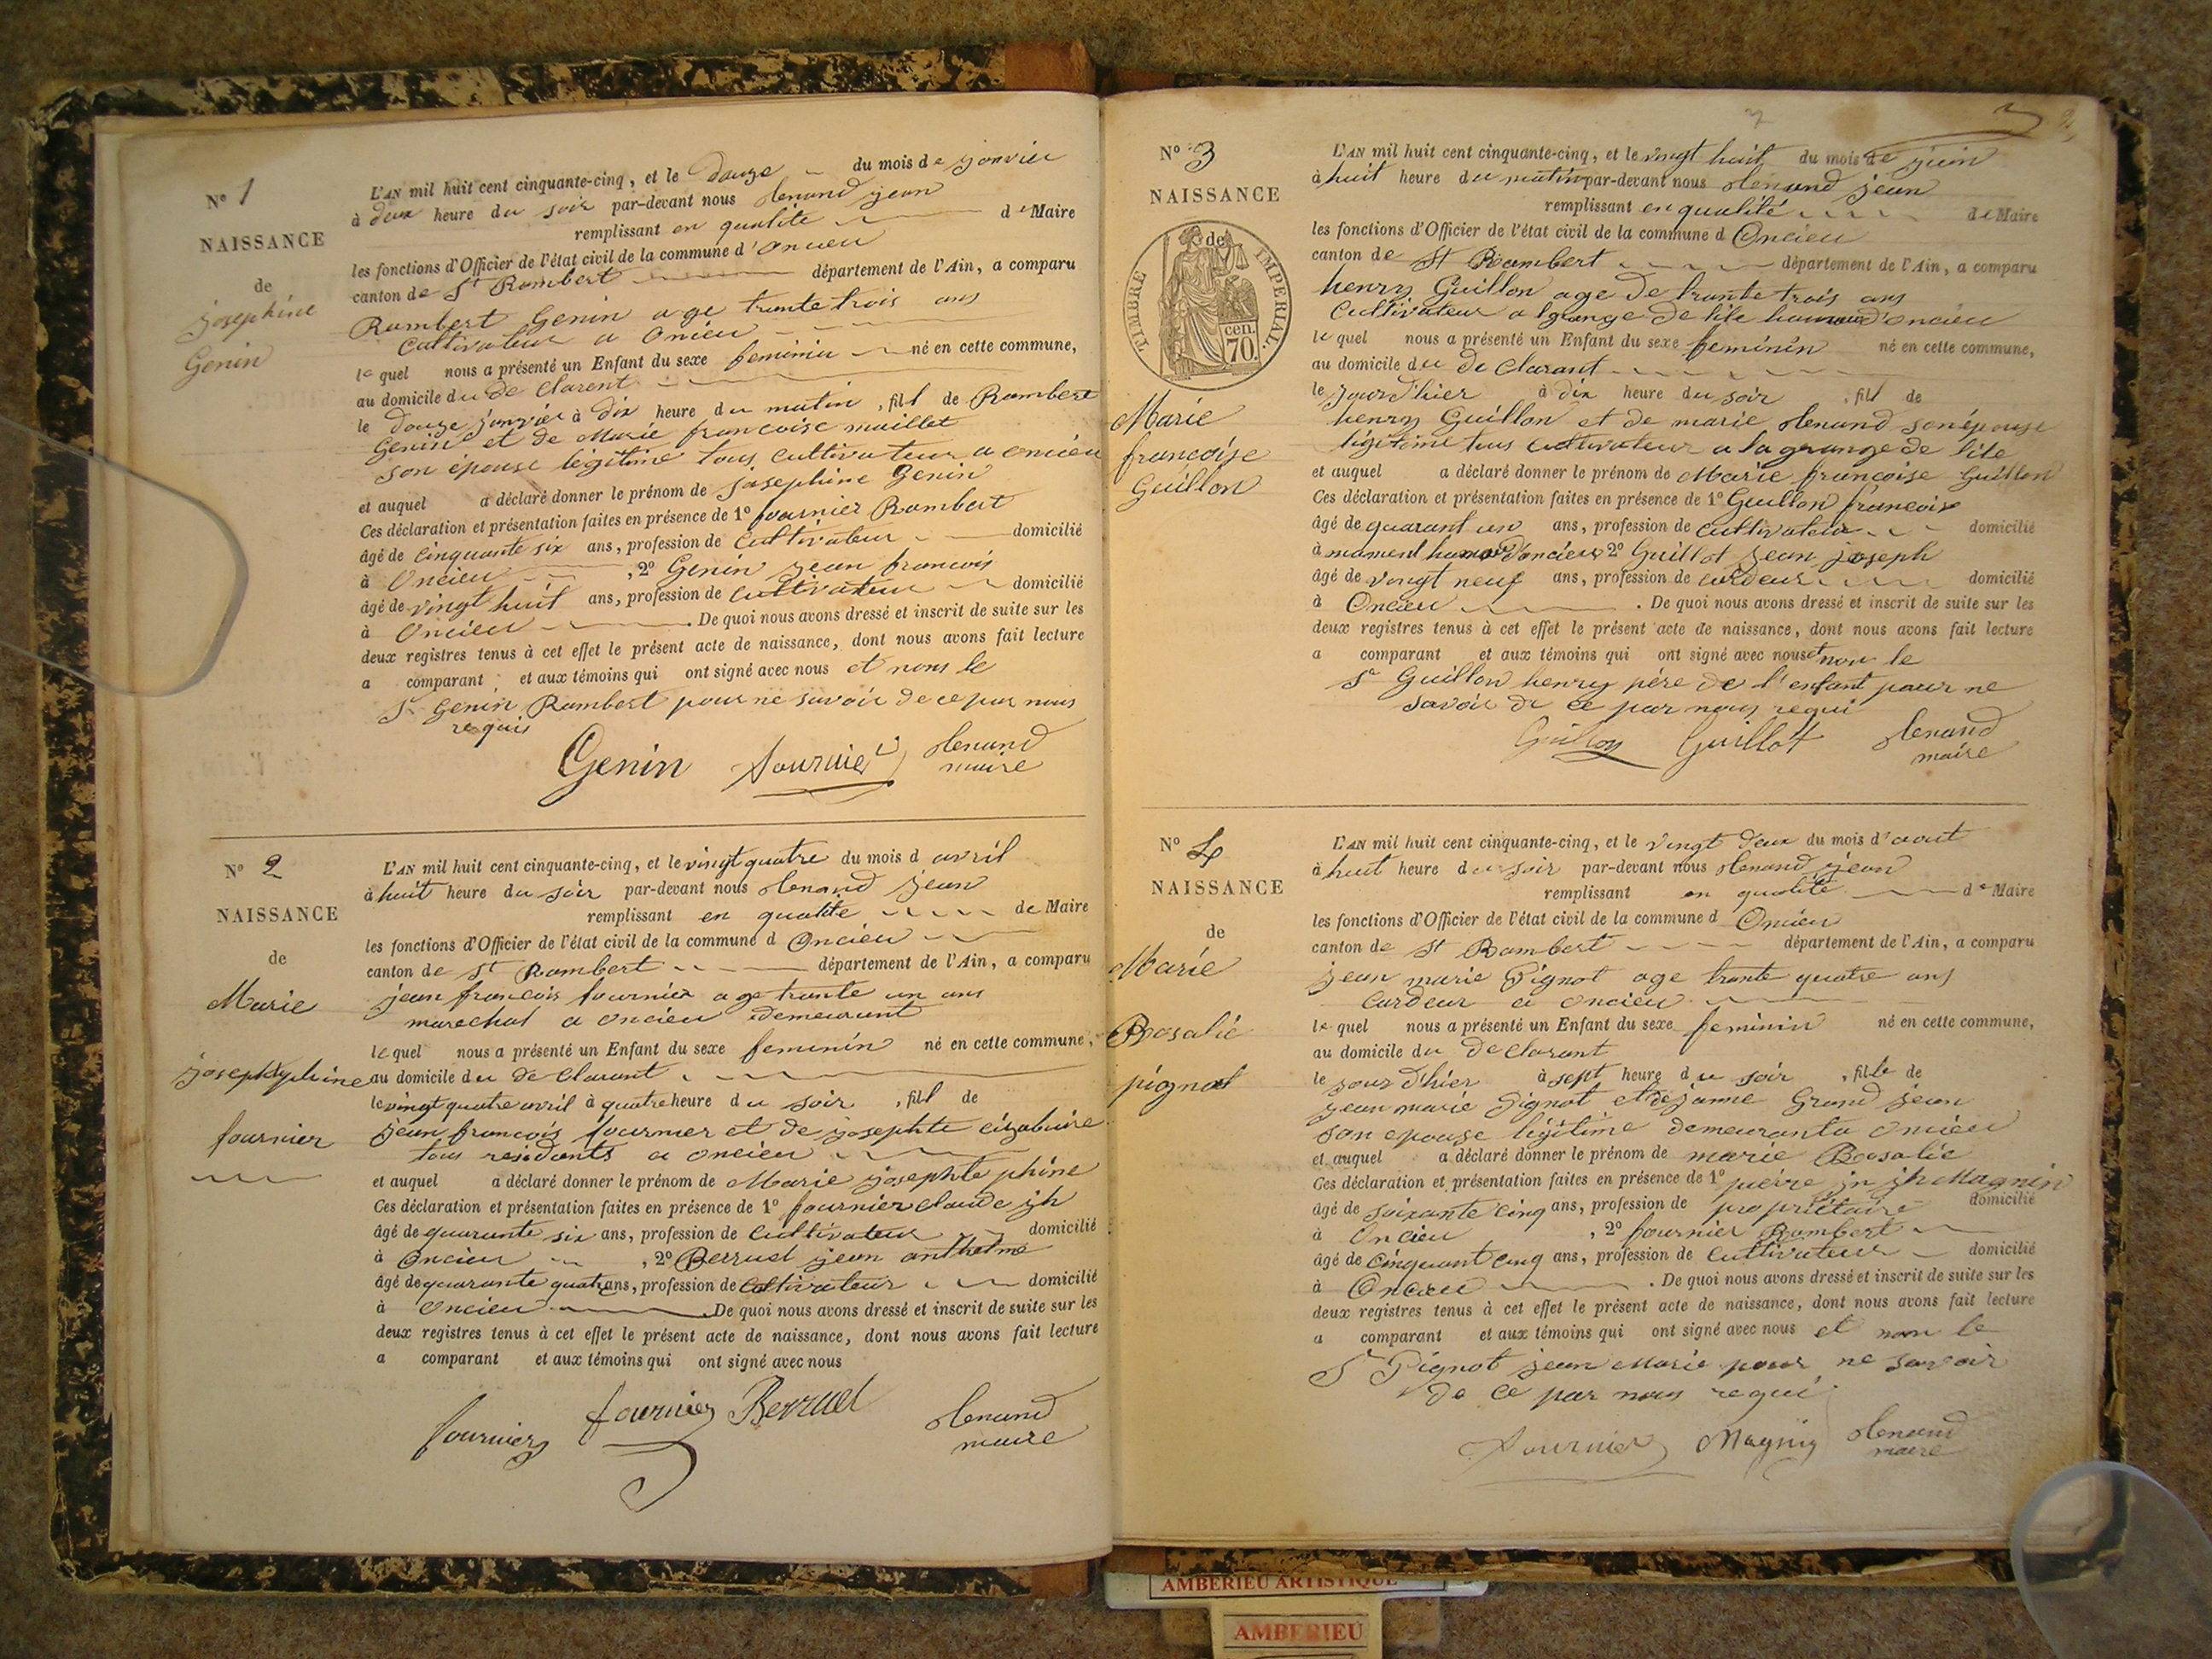 N° 1
NAISSANCE
de
josephine
Genin
L'AN mil huit cent cinquante-cinq, et le douze du mois de janvier
à deux heure du soir par-devant nous Henand jean
remplissant en qualite de Maire
les fonctions d'Officier de l'état civil de la commune d'oncieu
canton de St Rambert département de l'Ain, a comparu
Rambert Genin age trante trois ans
Cultivateur a Oncieu
le quel nous a présenté un Enfant du sexe feminin né en cette commune,
au domicile du de Clarent
le douze janvier à dix heure du matin, fill de Rambert
Genin et de Marie francoise maillet
son épouse légitime tous cultivateur a oncieu
et auquel a déclaré donner le prénom de josephine Genin
Ces déclaration et présentation faites en présence de 1° fournier Rambert
âgé de cinquante six ans, profession de Cultivateur domicilié
à Oncieu, 2° Genin jean francois
âgé de vingt huit ans, profession de Cultivateur domicilié
à Oncieu. De quoi nous avons dressé et inscrit de suite sur les
deux registres tenus à cet effet le présent acte de naissance, dont nous avons fait lecture
a comparant et aux témoins qui ont signé avec nous et nons le
Sr Genin Rambert pour ne savoir de ce par nous
requis
Genin fournier Henand
maire
N° 2
NAISSANCE
de
Marie
fournier
L'AN mil huit cent cinquante-cinq, et le vingt quatre du mois d avril
à huit heure du soir par-devant nous Henand jean
remplissant en qualite de Maire
les fonctions d'Officier de l'état civil de la commune d Oncieu
canton de St Rambert département de l'Ain, a comparu
jean francois fournier age trante un ans
marechal a oncieu demeurant
le quel nous a présenté un Enfant du sexe feminin né en cette commune,
au domicile du de Clarant
le vingt quatre avril à quatre heure du soir, fill de
jean francois fournier et de josephte
tous residants a oncieu
et auquel a déclaré donner le prénom de Marie josephte phine
Ces déclaration et présentation faites en présence de 1° fournier claude jh
âgé de quarante six ans, profession de Cultivateur domicilié
à Oncieu, 2° Berruel jean anthelme
âgé de quarante quatre ans, profession de Cultivateur domicilié
à Oncieu. De quoi nous avons dressé et inscrit de suite sur les
deux registres tenus à cet effet le présent acte de naissance, dont nous avons fait lecture
a comparant et aux témoins qui ont signé avec nous
fournier fournier Berruel Henand
maire
N° 3
NAISSANCE
de
TIMBRE IMPERIAL.
cen.
70.
Marie
francoise
Guillon
L'AN mil huit cent cinquante-cinq, et le vingt huit du mois de juin
à huit heure du matin par-devant nous Henand jean
remplissant en qualité de Maire
les fonctions d'Officier de l'état civil de la commune d Oncieu
canton de St Rambert département de l'Ain, a comparu
henry Guillon age de trante trois ans
Cultivateur a lgrange de lile d'oncieu
le quel nous a présenté un Enfant du sexe feminin né en cette commune,
au domicile du de Clarant
le jour d'hier à dix heure du soir, fill de
henry Guillon et de marie Henand son épouse
légitime tous cultivateur a la grange de l'ile
et auquel a déclaré donner le prénom de Marie françoise Guillon
Ces déclaration et présentation faites en présence de 1° Guillon françois
âgé de quarant un ans, profession de Cultivateur domicilié
à d'oncieu 2° Guillot jean joseph
âgé de vingt neuf ans, profession de cardeur domicilié
à Oncieu. De quoi nous avons dressé et inscrit de suite sur les
deux registres tenus à cet effet le présent acte de naissance, dont nous avons fait lecture
a comparant et aux témoins qui ont signé avec nous et non le
Sr Guillon henry pére de l'enfant pour ne
savoir de ce par nous requi
Guillon Guillot Henand
maire
N° 4
NAISSANCE
de
Marie
Rosalie
pignot
L'AN mil huit cent cinquante-cinq, et le vingt deux du mois d'aout
à huit heure du soir par-devant nous Henand jean
remplissant en qualité de Maire
les fonctions d'Officier de l'état civil de la commune d Oncieu
canton de St Rambert département de l'Ain, a comparu
jean marie Pignot age trante quatre ans
Cardeur a oncieu
le quel nous a présenté un Enfant du sexe feminin né en cette commune,
au domicile du de Clarant
le jour d'hier à sept heure du soir, fille de
jean marie Pignot et de janne Grand jean
son epouse légitime demeurant a oncieu
et auquel a déclaré donner le prénom de marie Rosalie
Ces déclaration et présentation faites en présence de 1° pierre jn jh Magnin
âgé de soixante cinq ans, profession de propriétaire domicilié
à Oncieu, 2° fournier Rambert
âgé de cinquant cinq ans, profession de Cultivateur domicilié
à Oncieu. De quoi nous avons dressé et inscrit de suite sur les
deux registres tenus à cet effet le présent acte de naissance, dont nous avons fait lecture
a comparant et aux témoins qui ont signé avec nous et non le
Sr Pignot jean Marie pour ne savoir
de ce par nous requi
fournier Magnin Henand
maire
AMBERIEU ARTISTIQUE
AMBERIEU